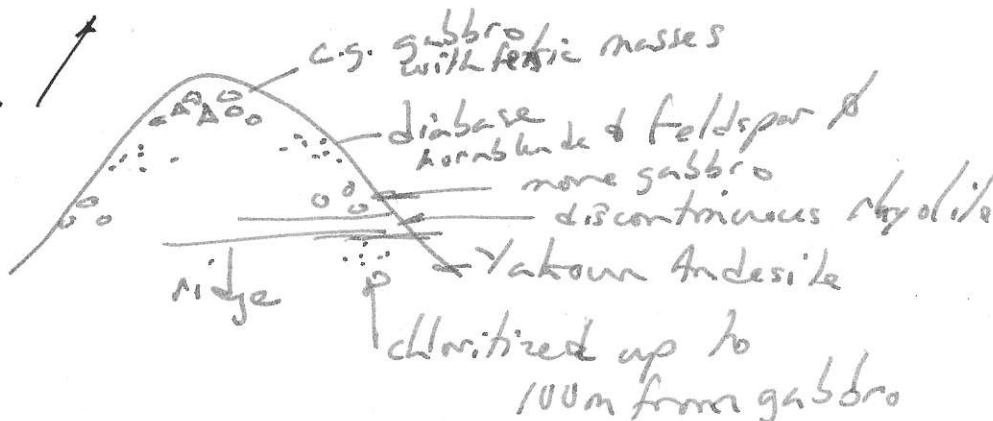 c.g. gabbro
with felsic masses
diabase
hornblende & feldspar ∅
more gabbro
discontinuous rhyolite
Yakoun Andesite
ridge
chloritized up to
100m from gabbro